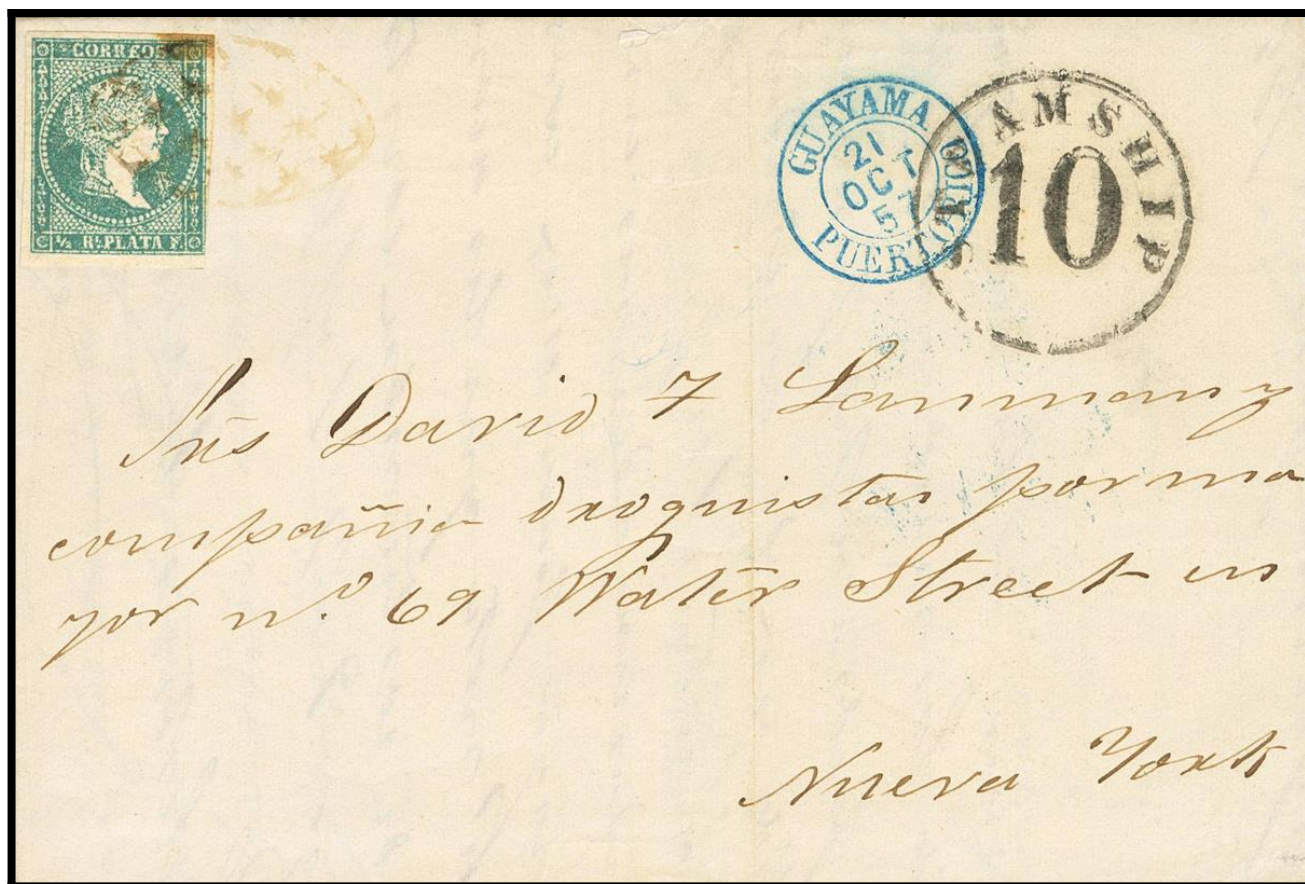 CORREOS
½ Rl. PLATA F.
GUAYAMA
21
OCT
57
PUERTO RICO
STEAMSHIP
10
Srēs David T Lanman y
compañia droguistas por ma
yor nº. 69 Water Street en
Nueva York